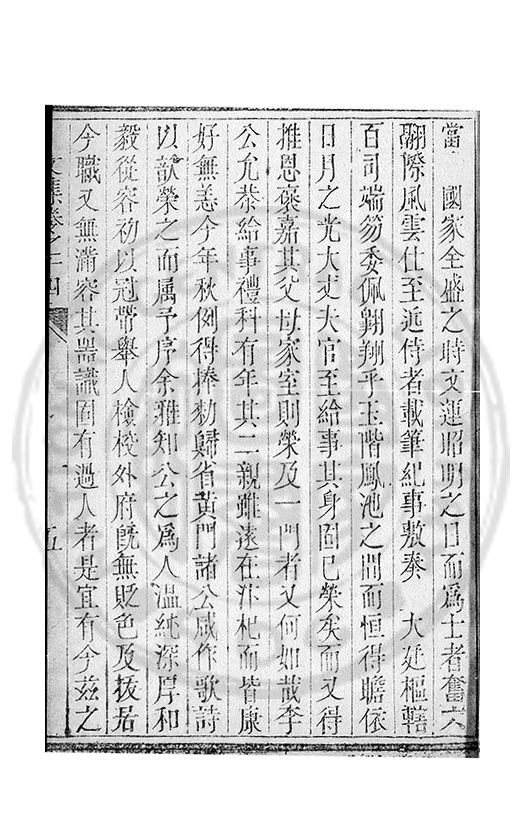 當　國家全盛之時文運昭明之日而爲士者奮六
翮際風雲仕至近侍者載筆紀事敷奏　大廷樞轄
百司端笏委佩翺翔乎玉階鳳池之間而恒得瞻依
日月之光大丈夫官至給事其身固已榮矣而又得
推恩褒嘉其父母家室則榮及一門者又何如哉李
公允恭給事禮科有年其二親雖遠在桑梓而皆康
好無恙今年秋例得捧勑歸省黃門諸公咸作歌詩
以歆榮之而属予序余雅知公之爲人溫純深厚和
毅從容初以冠帶舉人檢校外府旣無貶色及拔居
今職又無滿容其器識固有過人者是宜有今兹之
文集卷之二四
五